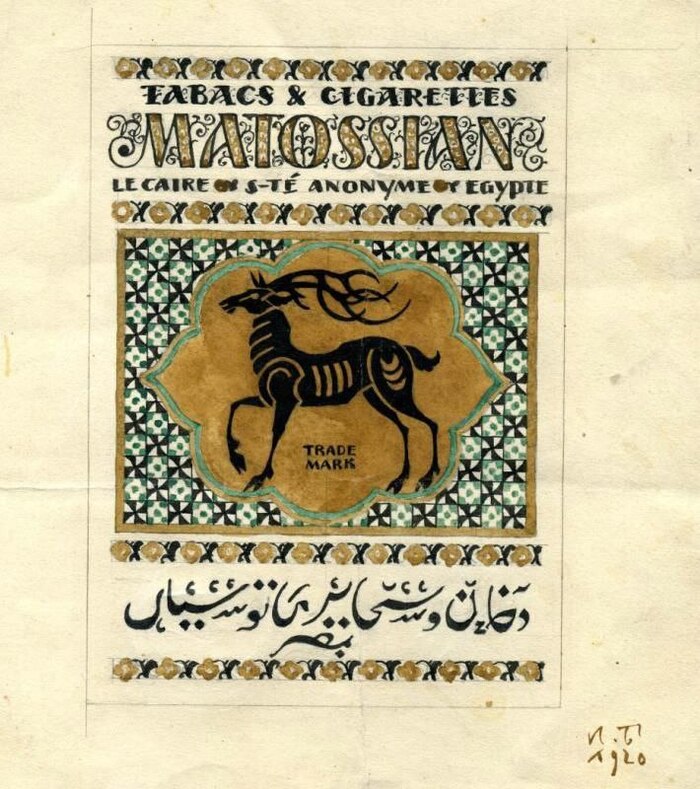 TABACS & CIGARETTES
MATOSSIAN
LE CAIRE S-TÉ ANONYME EGYPTE
TRADE
MARK
دخاين وسجاير ماتوسيان
بمصر
И.Б
1920